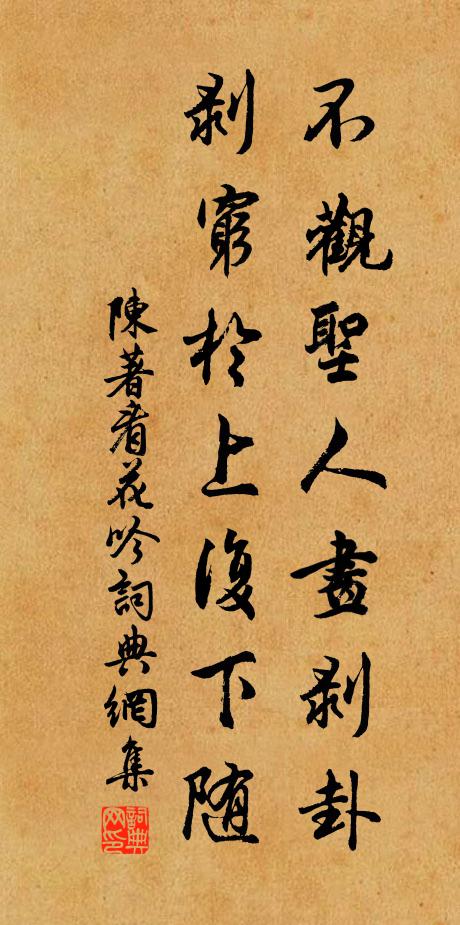 不觀聖人畫剥卦
剥窮於上復下随
陳著看花吟詞典網集
詞典网印